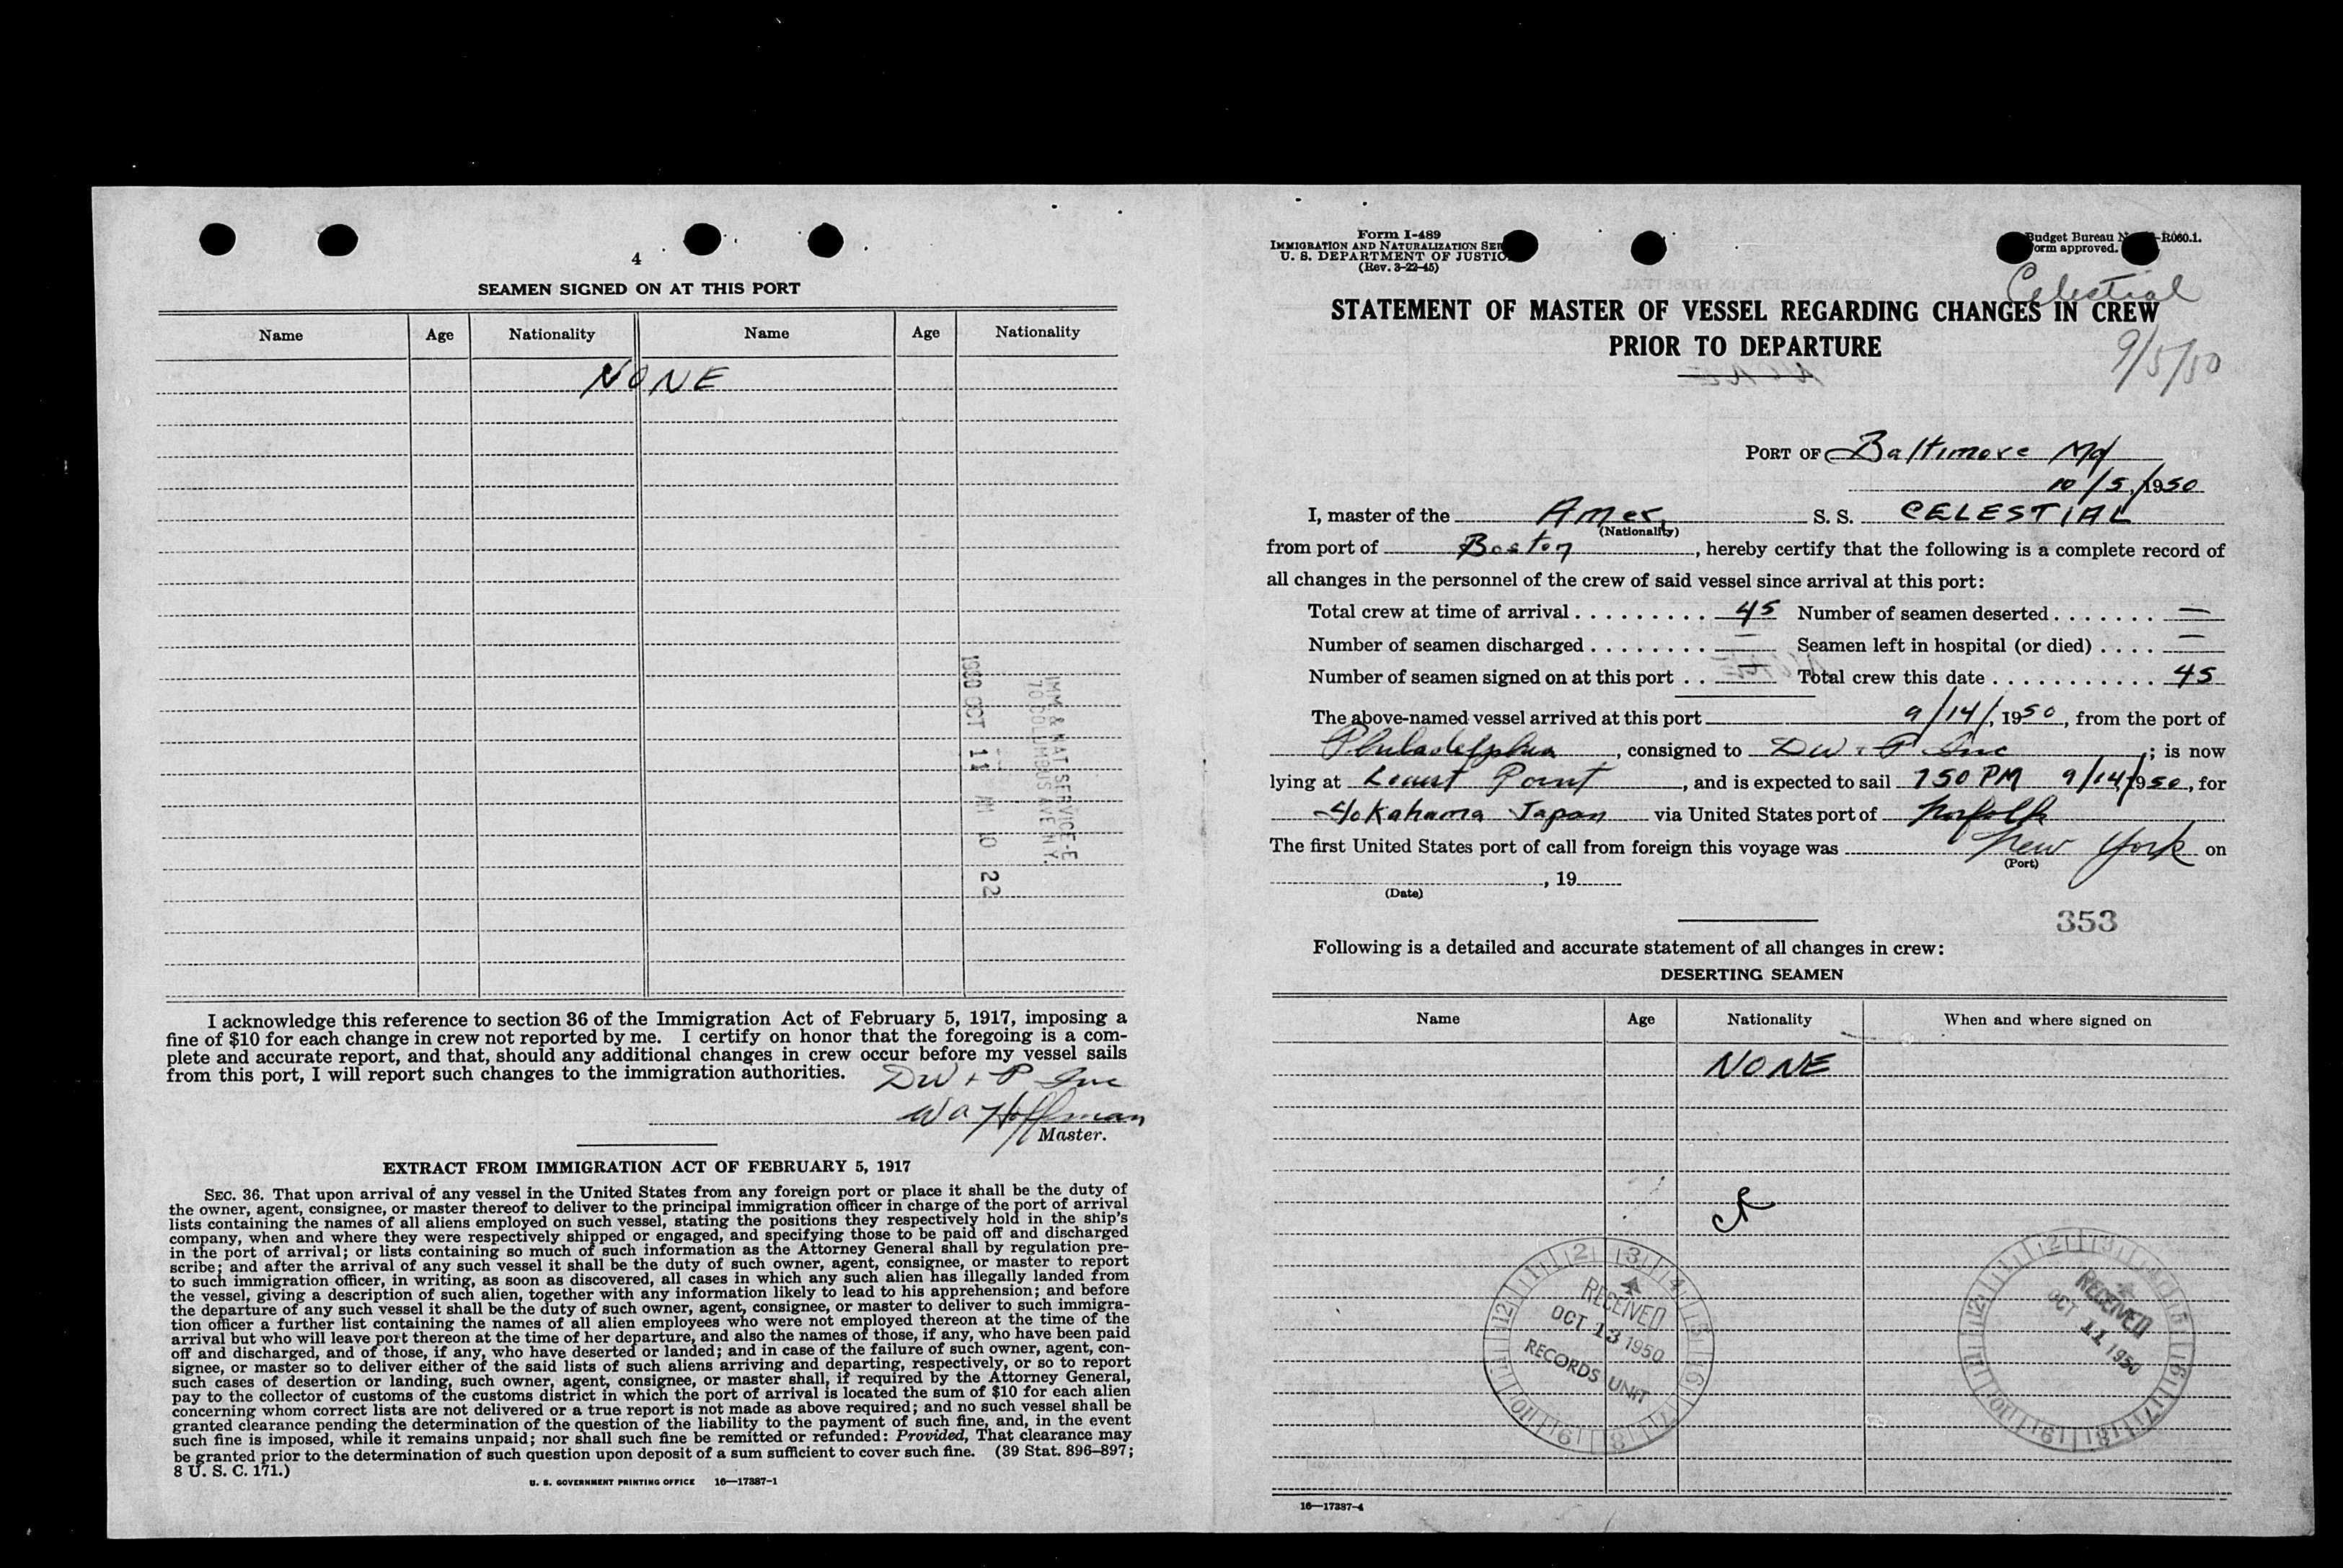 4
SEAMEN SIGNED ON AT THIS PORT
Name Age Nationality Name Age Nationality
NONE
IMM & NAT SERVICE-E
70 COLUMBUS AVE N.Y.
1950 OCT 11 AM 10 22
I acknowledge this reference to section 36 of the Immigration Act of February 5, 1917, imposing a
fine of $10 for each change in crew not reported by me. I certify on honor that the foregoing is a com-
plete and accurate report, and that, should any additional changes in crew occur before my vessel sails
from this port, I will report such changes to the immigration authorities.
DW + P Inc
W a Hoffman
Master.
EXTRACT FROM IMMIGRATION ACT OF FEBRUARY 5, 1917
SEC. 36. That upon arrival of any vessel in the United States from any foreign port or place it shall be the duty of
the owner, agent, consignee, or master thereof to deliver to the principal immigration officer in charge of the port of arrival
lists containing the names of all aliens employed on such vessel, stating the positions they respectively hold in the ship's
company, when and where they were respectively shipped or engaged, and specifying those to be paid off and discharged
in the port of arrival; or lists containing so much of such information as the Attorney General shall by regulation pre-
scribe; and after the arrival of any such vessel it shall be the duty of such owner, agent, consignee, or master to report
to such immigration officer, in writing, as soon as discovered, all cases in which any such alien has illegally landed from
the vessel, giving a description of such alien, together with any information likely to lead to his apprehension; and before
the departure of any such vessel it shall be the duty of such owner, agent, consignee, or master to deliver to such immigra-
tion officer a further list containing the names of all alien employees who were not employed thereon at the time of the
arrival but who will leave port thereon at the time of her departure, and also the names of those, if any, who have been paid
off and discharged, and of those, if any, who have deserted or landed; and in case of the failure of such owner, agent, con-
signee, or master so to deliver either of the said lists of such aliens arriving and departing, respectively, or so to report
such cases of desertion or landing, such owner, agent, consignee, or master shall, if required by the Attorney General,
pay to the collector of customs of the customs district in which the port of arrival is located the sum of $10 for each alien
concerning whom correct lists are not delivered or a true report is not made as above required; and no such vessel shall be
granted clearance pending the determination of the question of the liability to the payment of such fine, and, in the event
such fine is imposed, while it remains unpaid; nor shall such fine be remitted or refunded: Provided, That clearance may
be granted prior to the determination of such question upon deposit of a sum sufficient to cover such fine. (39 Stat. 896–897;
8 U. S. C. 171.)
U. S. GOVERNMENT PRINTING OFFICE 16—17387-1
Form I-489
IMMIGRATION AND NATURALIZATION SER
U. S. DEPARTMENT OF JUSTIC
(Rev. 3-22-45)
Budget Bureau N -R060.1.
orm approved.
Celestial
STATEMENT OF MASTER OF VESSEL REGARDING CHANGES IN CREW
PRIOR TO DEPARTURE
9/5/50
PORT OF Baltimore Md
10/5/, 1950
I, master of the Amer. S. S. CELESTIAL
(Nationality)
from port of Boston, hereby certify that the following is a complete record of
all changes in the personnel of the crew of said vessel since arrival at this port:
Total crew at time of arrival . . . . . . . . . 45 Number of seamen deserted . . . . . . . —
Number of seamen discharged . . . . . . . . — Seamen left in hospital (or died) . . . . —
Number of seamen signed on at this port . . — Total crew this date . . . . . . . . . . . . 45
The above-named vessel arrived at this port 9/14/, 1950, from the port of
Philadelphia, consigned to DW + P Inc; is now
lying at Locust Point, and is expected to sail 750 PM 9/14/, 1950, for
Yokahama Japan via United States port of Norfolk
The first United States port of call from foreign this voyage was New York on
(Port)
, 19
(Date)
353
Following is a detailed and accurate statement of all changes in crew:
DESERTING SEAMEN
Name Age Nationality When and where signed on
NONE
RECEIVED
OCT 13 1950
RECORDS UNIT
RECEIVED
OCT 11 1950
16—17387-4